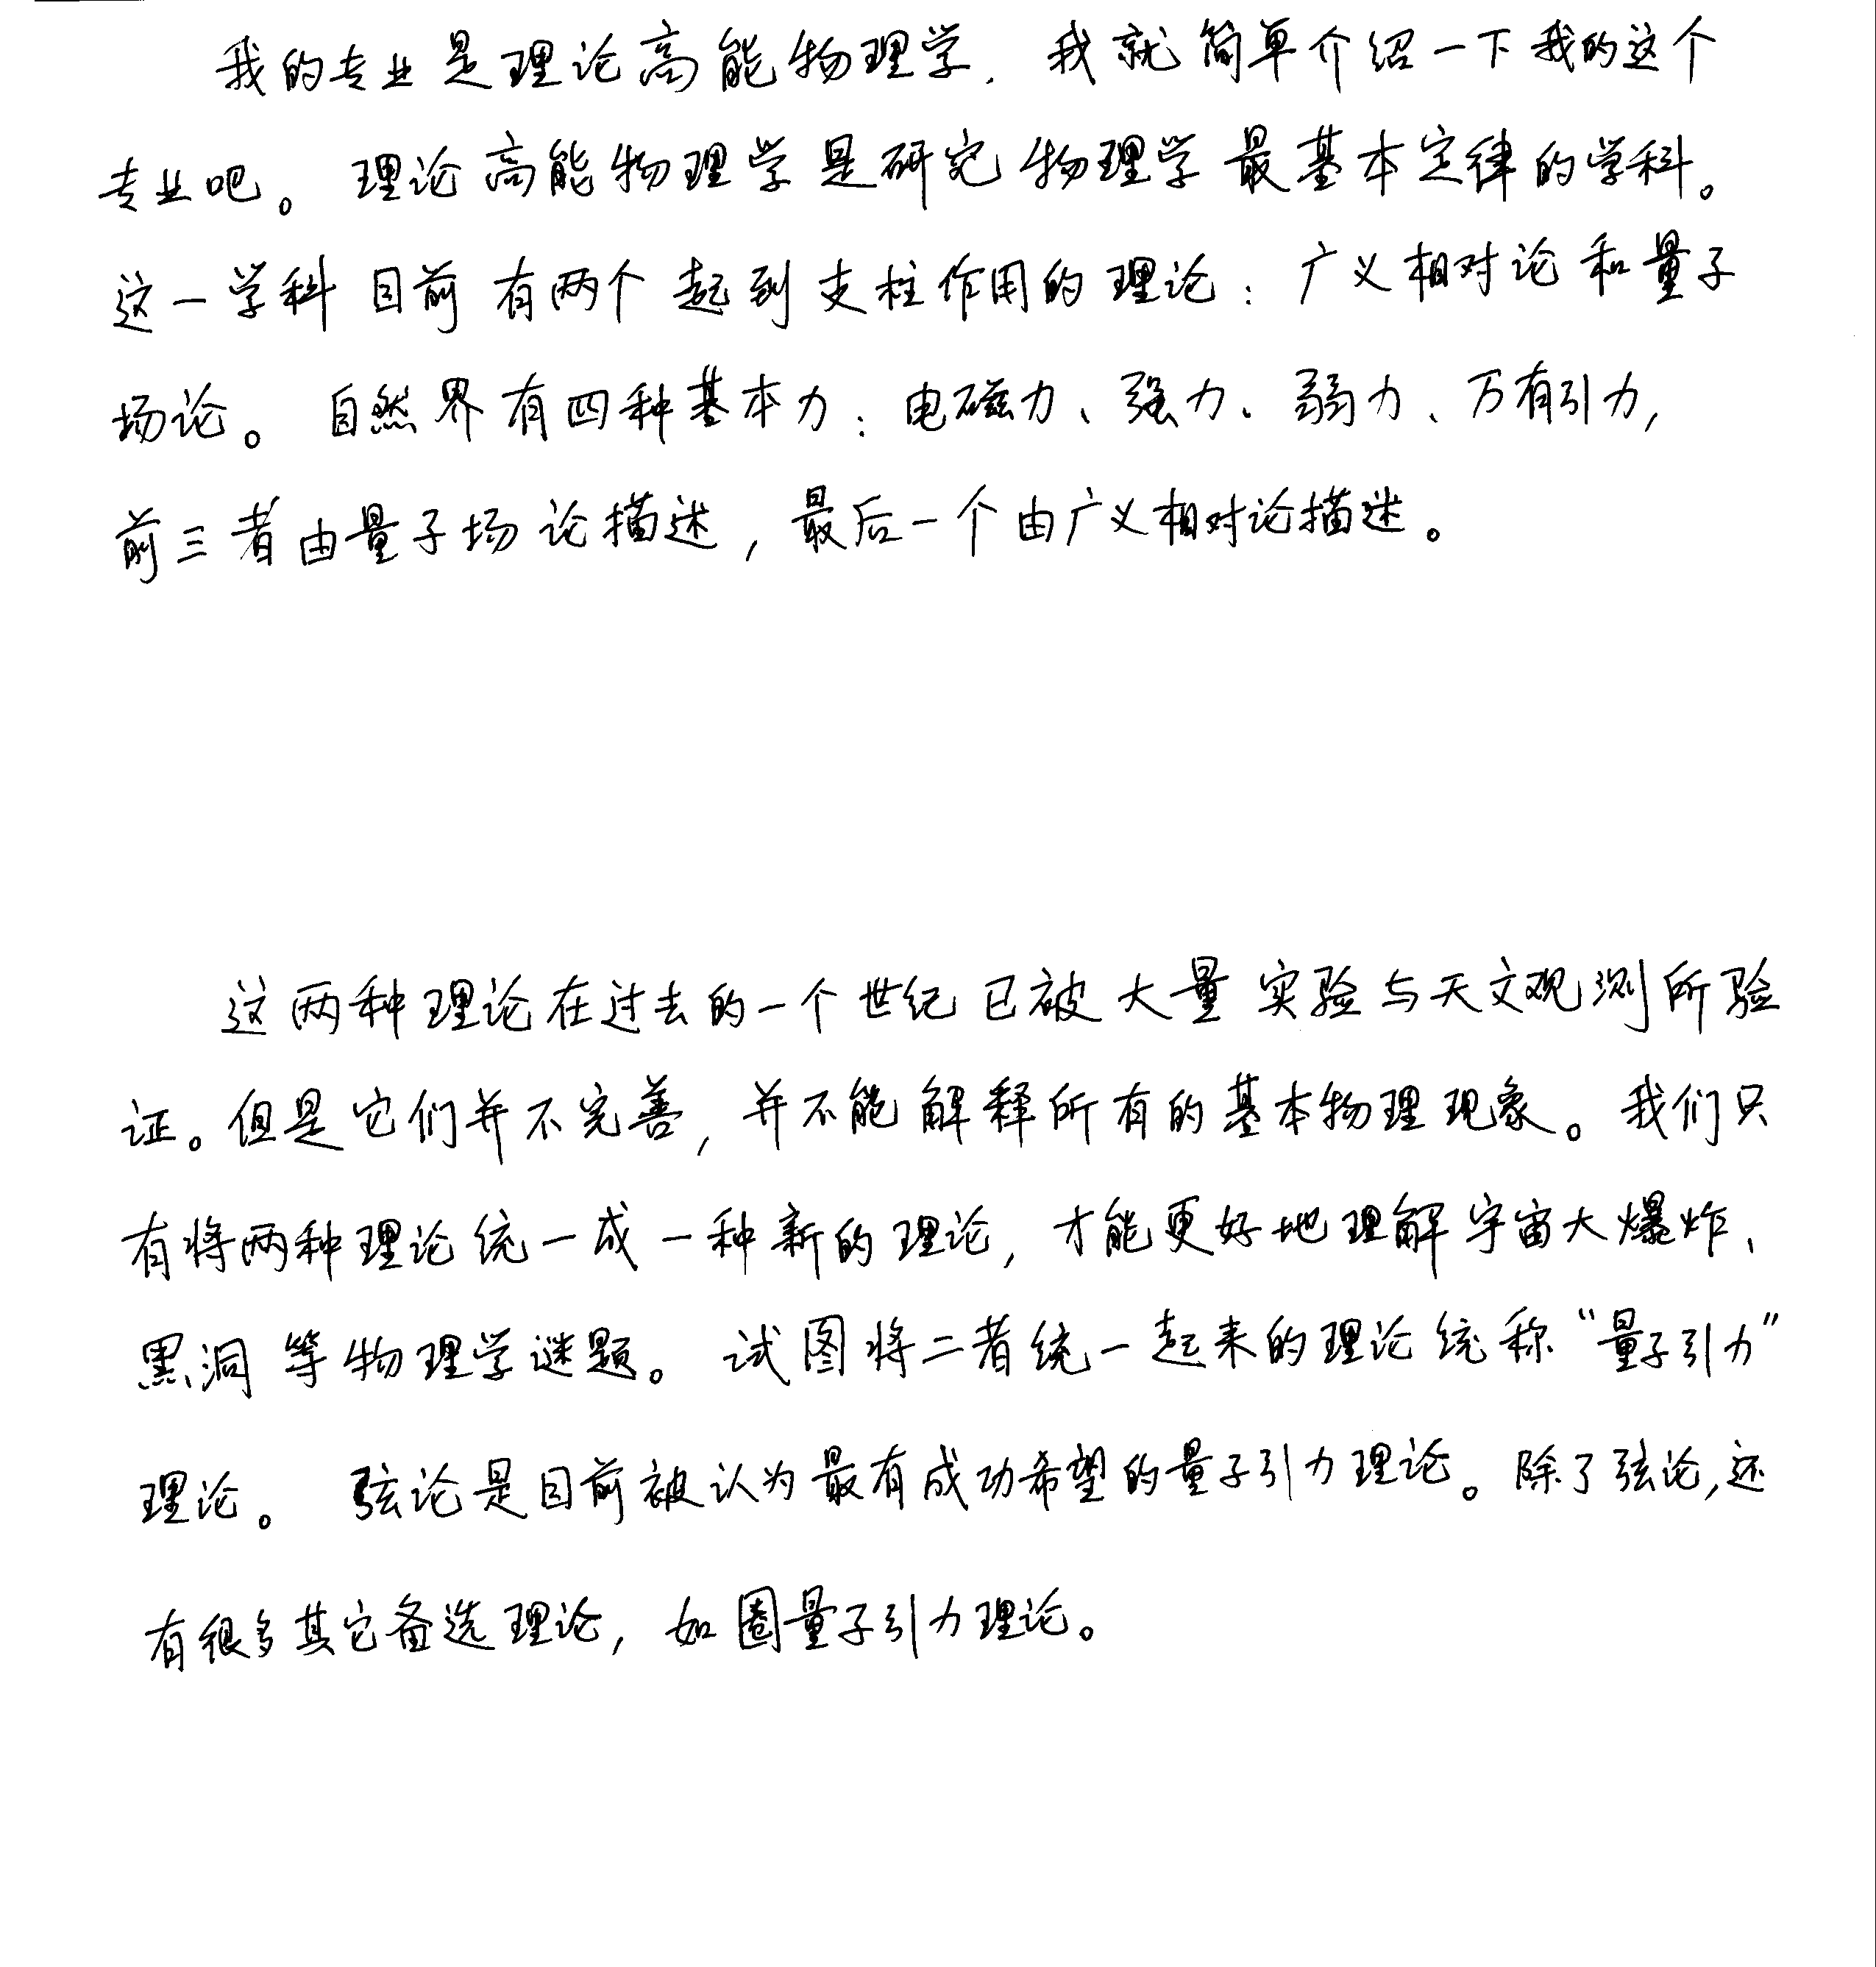 我的专业是理论高能物理学. 我就简单介绍一下我的这个
专业吧。理论高能物理学是研究物理学最基本定律的学科。
这一学科目前有两个起到支柱作用的理论：广义相对论和量子
场论。自然界有四种基本力：电磁力、强力、弱力、万有引力,
前三者由量子场论描述，最后一个由广义相对论描述。
这两种理论在过去的一个世纪已被大量实验与天文观测所验
证。但是它们并不完善，并不能解释所有的基本物理现象。我们只
有将两种理论统一成一种新的理论，才能更好地理解宇宙大爆炸、
黑洞等物理学谜题。试图将二者统一起来的理论统称“量子引力”
理论。弦论是目前被认为最有成功希望的量子引力理论。除了弦论,还
有很多其它备选理论，如圈量子引力理论。